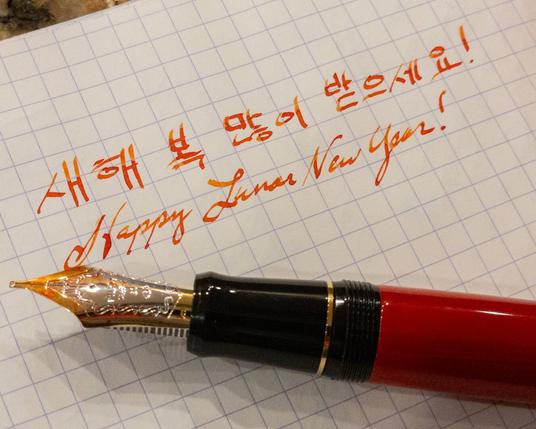 새해 복 많이 받으세요!
Happy Lunar New Year!